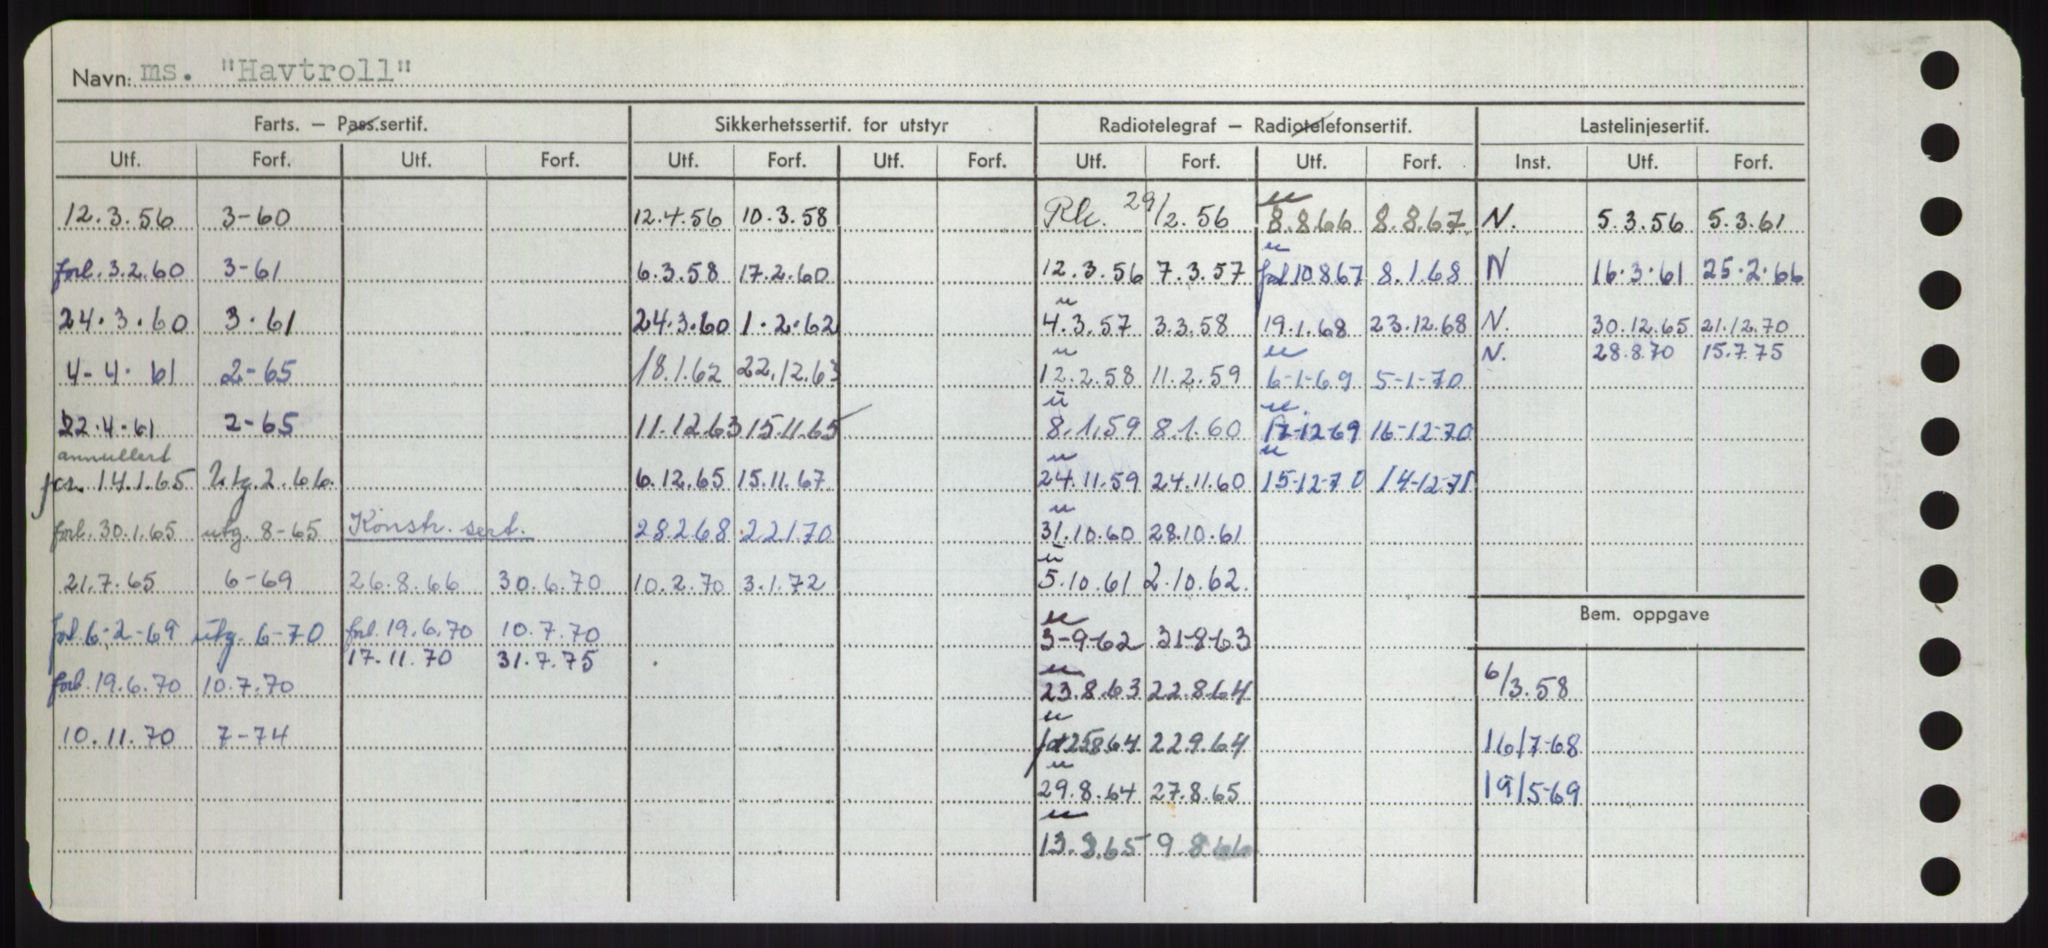 Navn: ms. "Havtroll"
Farts. — Pass.sertif. Sikkerhetssertif. for utstyr Radiotelegraf — Radiotelefonsertif. Lastelinjesertif.
Utf. Forf. Utf. Forf. Utf. Forf. Utf. Forf. Utf. Forf. Utf. Forf. Inst. Utf. Forf.
12.3.56 3-60 12.4.56 10.3.58 Rk. 29/2.56 u 8.8.66 8.8.67. N. 5.3.56 5.3.61
forl. 3.2.60 3-61 6.3.58 17.2.60 12.3.56 7.3.57 u forl 10.8.67 8.1.68 N 16.3.61 25.2.66
24.3.60 3.61 24.3.60 1.2.62 u 4.3.57 3.3.58 19.1.68 23.12.68 N. 30.12.65 21.12.70
N. 28.8.70 15.7.75
4-4-61 2-65 18.1.62 22.12.63 u 12.2.58 11.2.59 u 6-1-69 5-1-70
22.4.61 2-65 11.12.63 15.11.65 u 8.1.59 8.1.60 u. 17-12-69 16-12-70
annullert
14.1.65 2.66 6.12.65 15.11.67 u 24.11.59 24.11.60 u 15-12-70 14-12-71
forl. 30.1.65 utg. 8-65 Konstr. sert. 28.2.68 2.2.1.70 u 31.10.60 28.10.61
21.7.65 6-69 26.8.66 30.6.70 10.2.70 3.1.72 u 5.10.61 2.10.62.
Bem. oppgave
forl 6-2-69 utg. 6-70 forl. 19.6.70 10.7.70 u 3-9-62 31-8-63
17.11.70 31.7.75
forl. 19.6.70 10.7.70 u 23.8.63 22.8.64 6/3.58
10.11.70 7-74 u 25.8.64 22.9.64 16/7-68
u 29.8.64 27.8.65 19/5-69
u 13.8.65 9.8.66